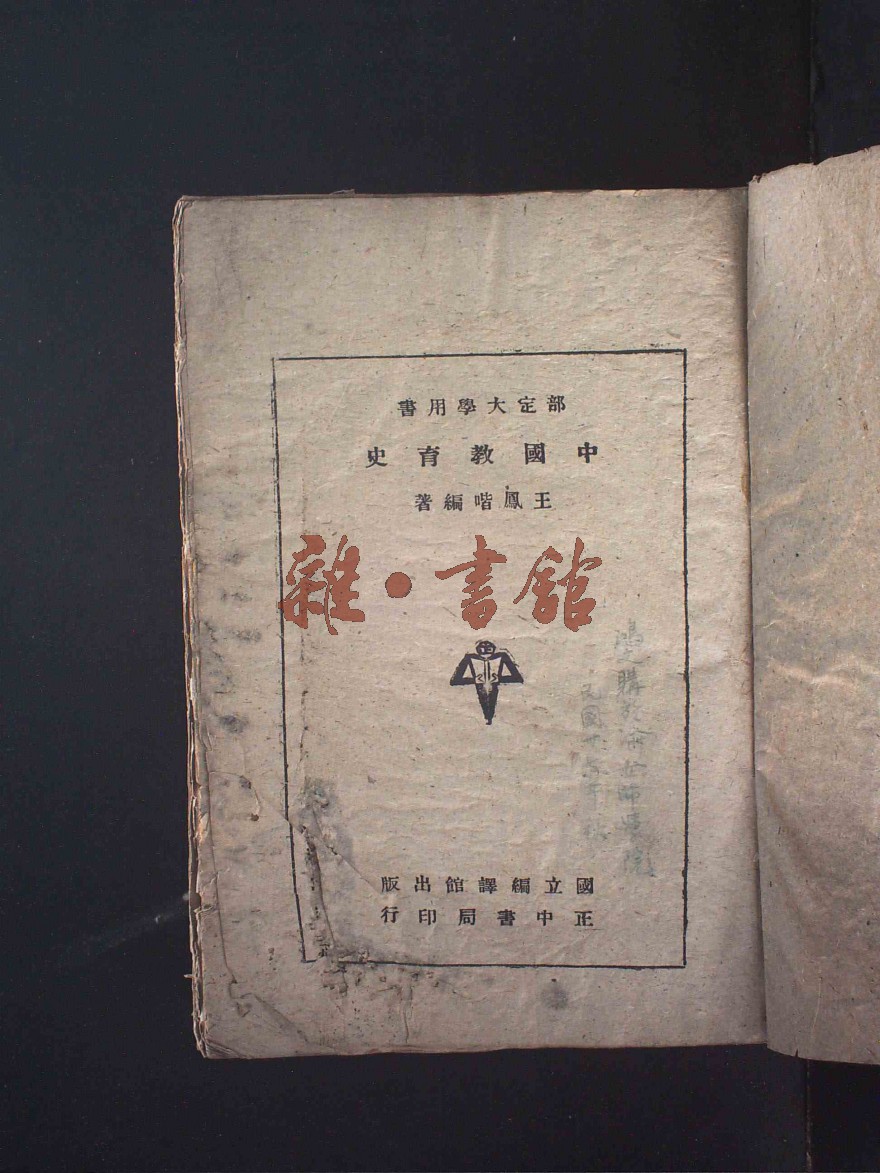 部定大學用書
中國教育史
王鳳喈編著
雜·書館
國立編譯館出版
正中書局印行